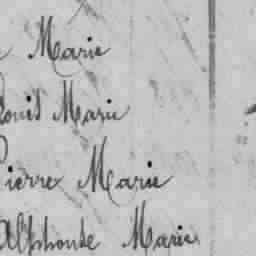 Marie
Louis Marie
Pierre Marie
Alphonse Marie